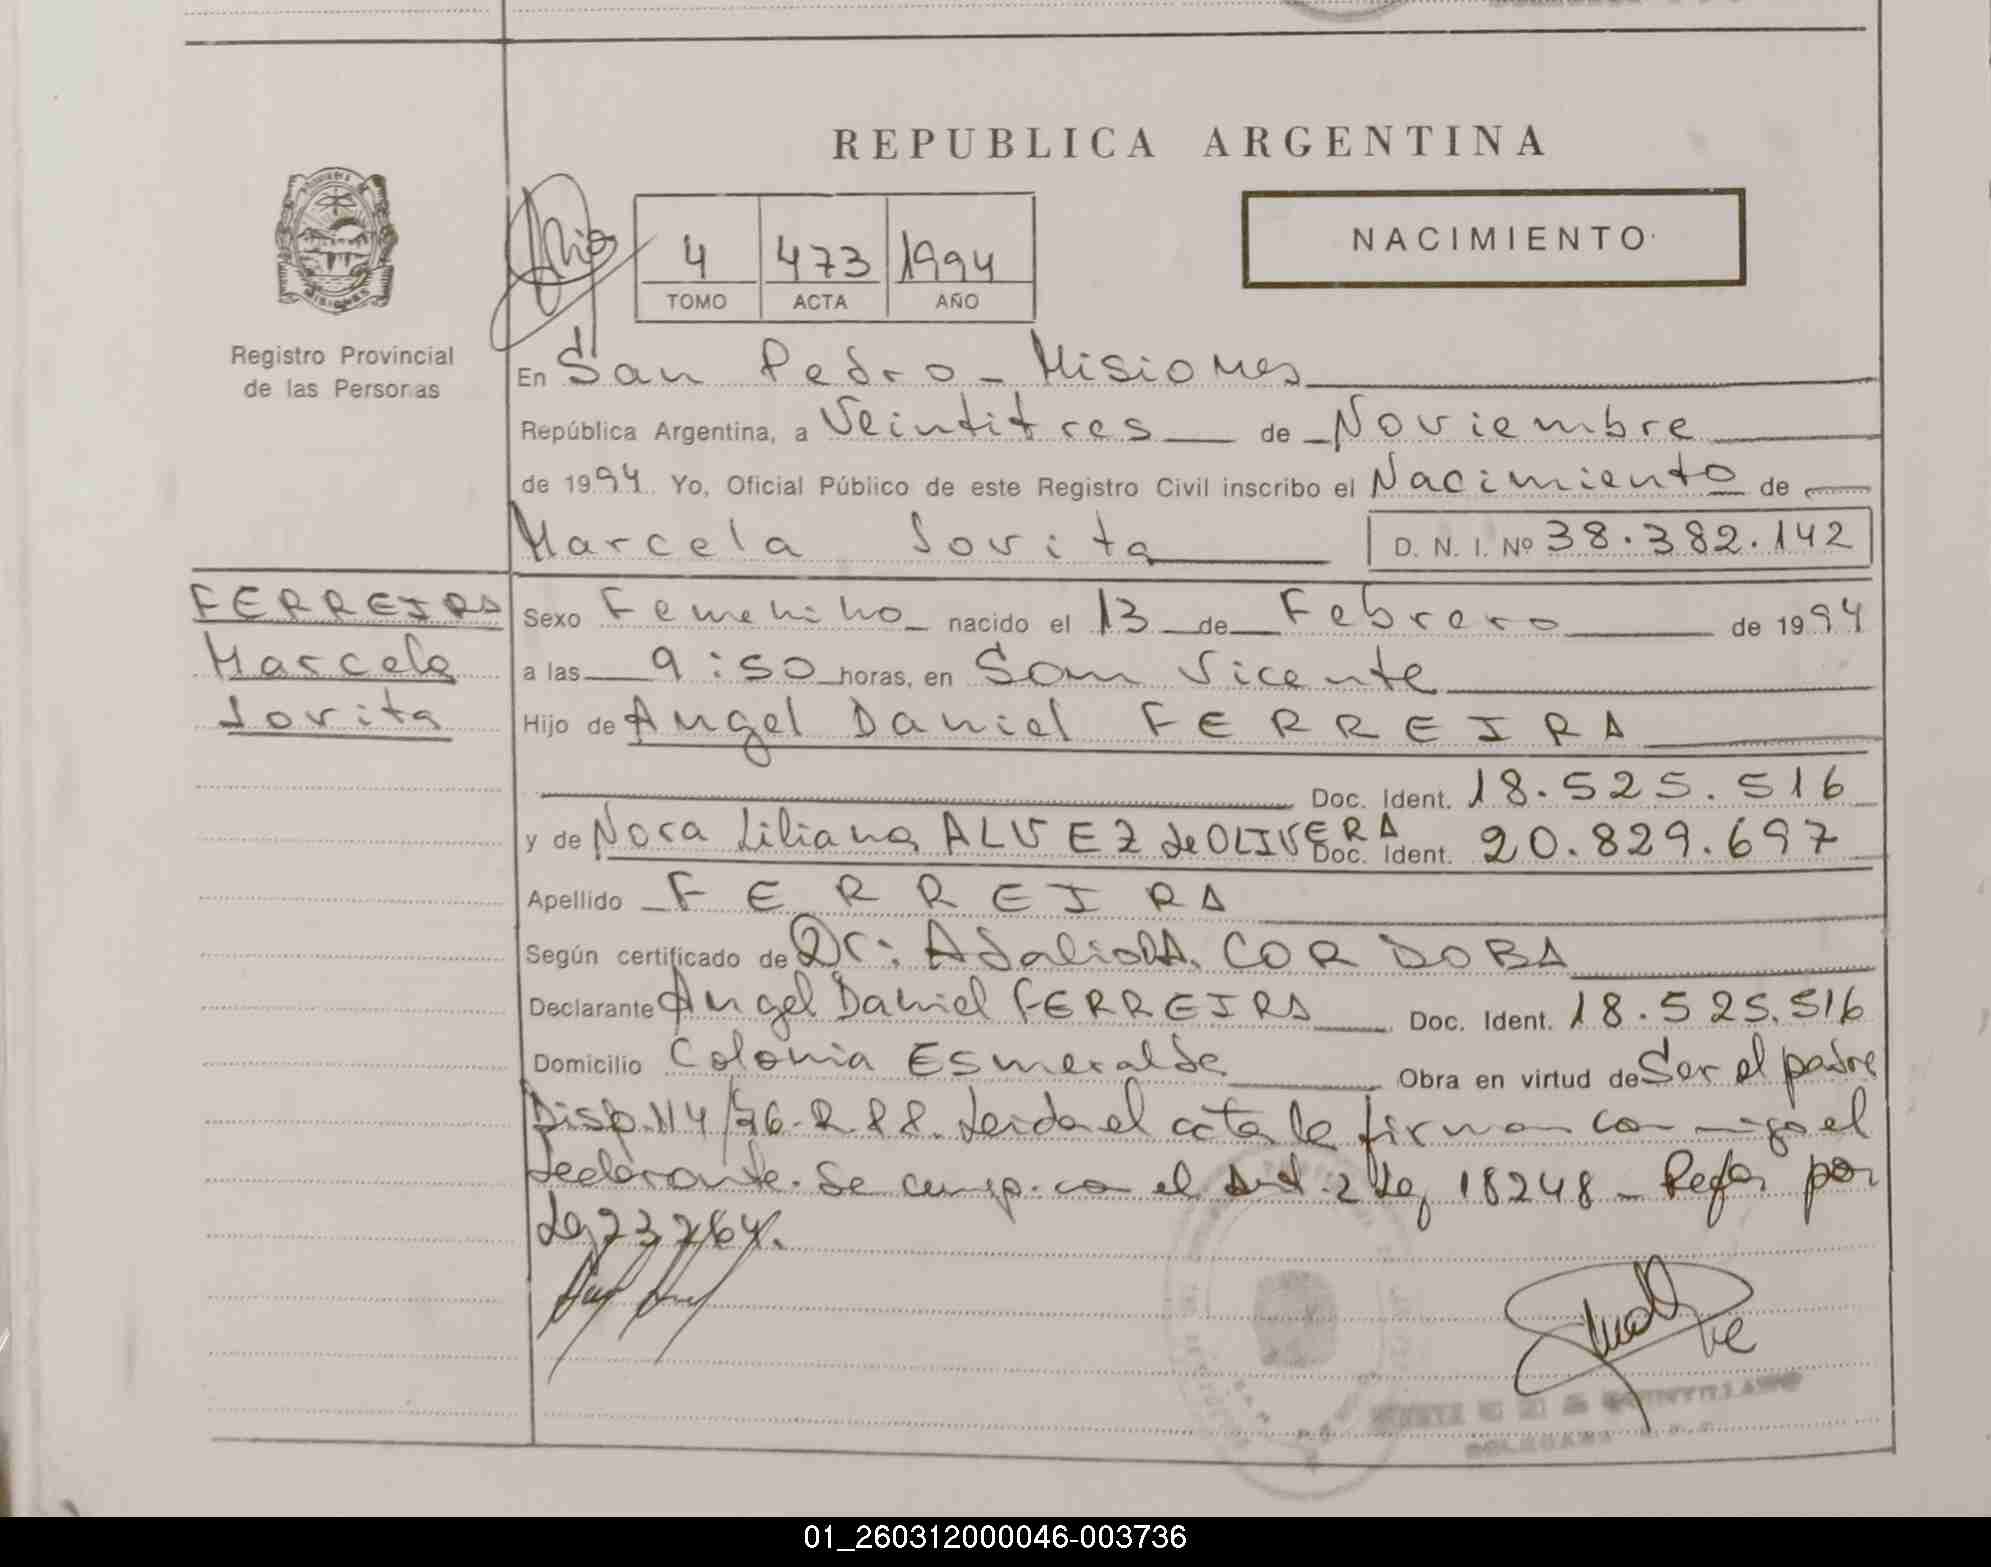 REPUBLICA ARGENTINA
NACIMIENTO
4 473 1994
TOMO ACTA AÑO
Registro Provincial
de las Personas
En San Pedro - Misiones
República Argentina, a Veintitres de Noviembre
de 1994. Yo, Oficial Público de este Registro Civil inscribo el Nacimiento de
Marcela Jovita D. N. I. Nº 38.382.142
FERREIRA
Marcela
Jovita
Sexo Femenino nacido el 13 de Febrero de 1994
a las 9:50 horas, en San Vicente
Hijo de Angel Daniel FERREIRA
Doc. Ident. 18.525.516
y de Nora Liliana ALVEZ de OLIVERA Doc. Ident. 20.829.697
Apellido FERREIRA
Según certificado de Dr: CORDOBA
Declarante Angel Daniel FERREIRA Doc. Ident. 18.525.516
Domicilio Colonia Esmeralda Obra en virtud de Ser el padre
Disp. 114/76. R.P.P. Leida el acta la firma conmigo el
declarante. Se cump. con el Art. 2 Ley 18248 - por
Ley
01_260312000046-003736